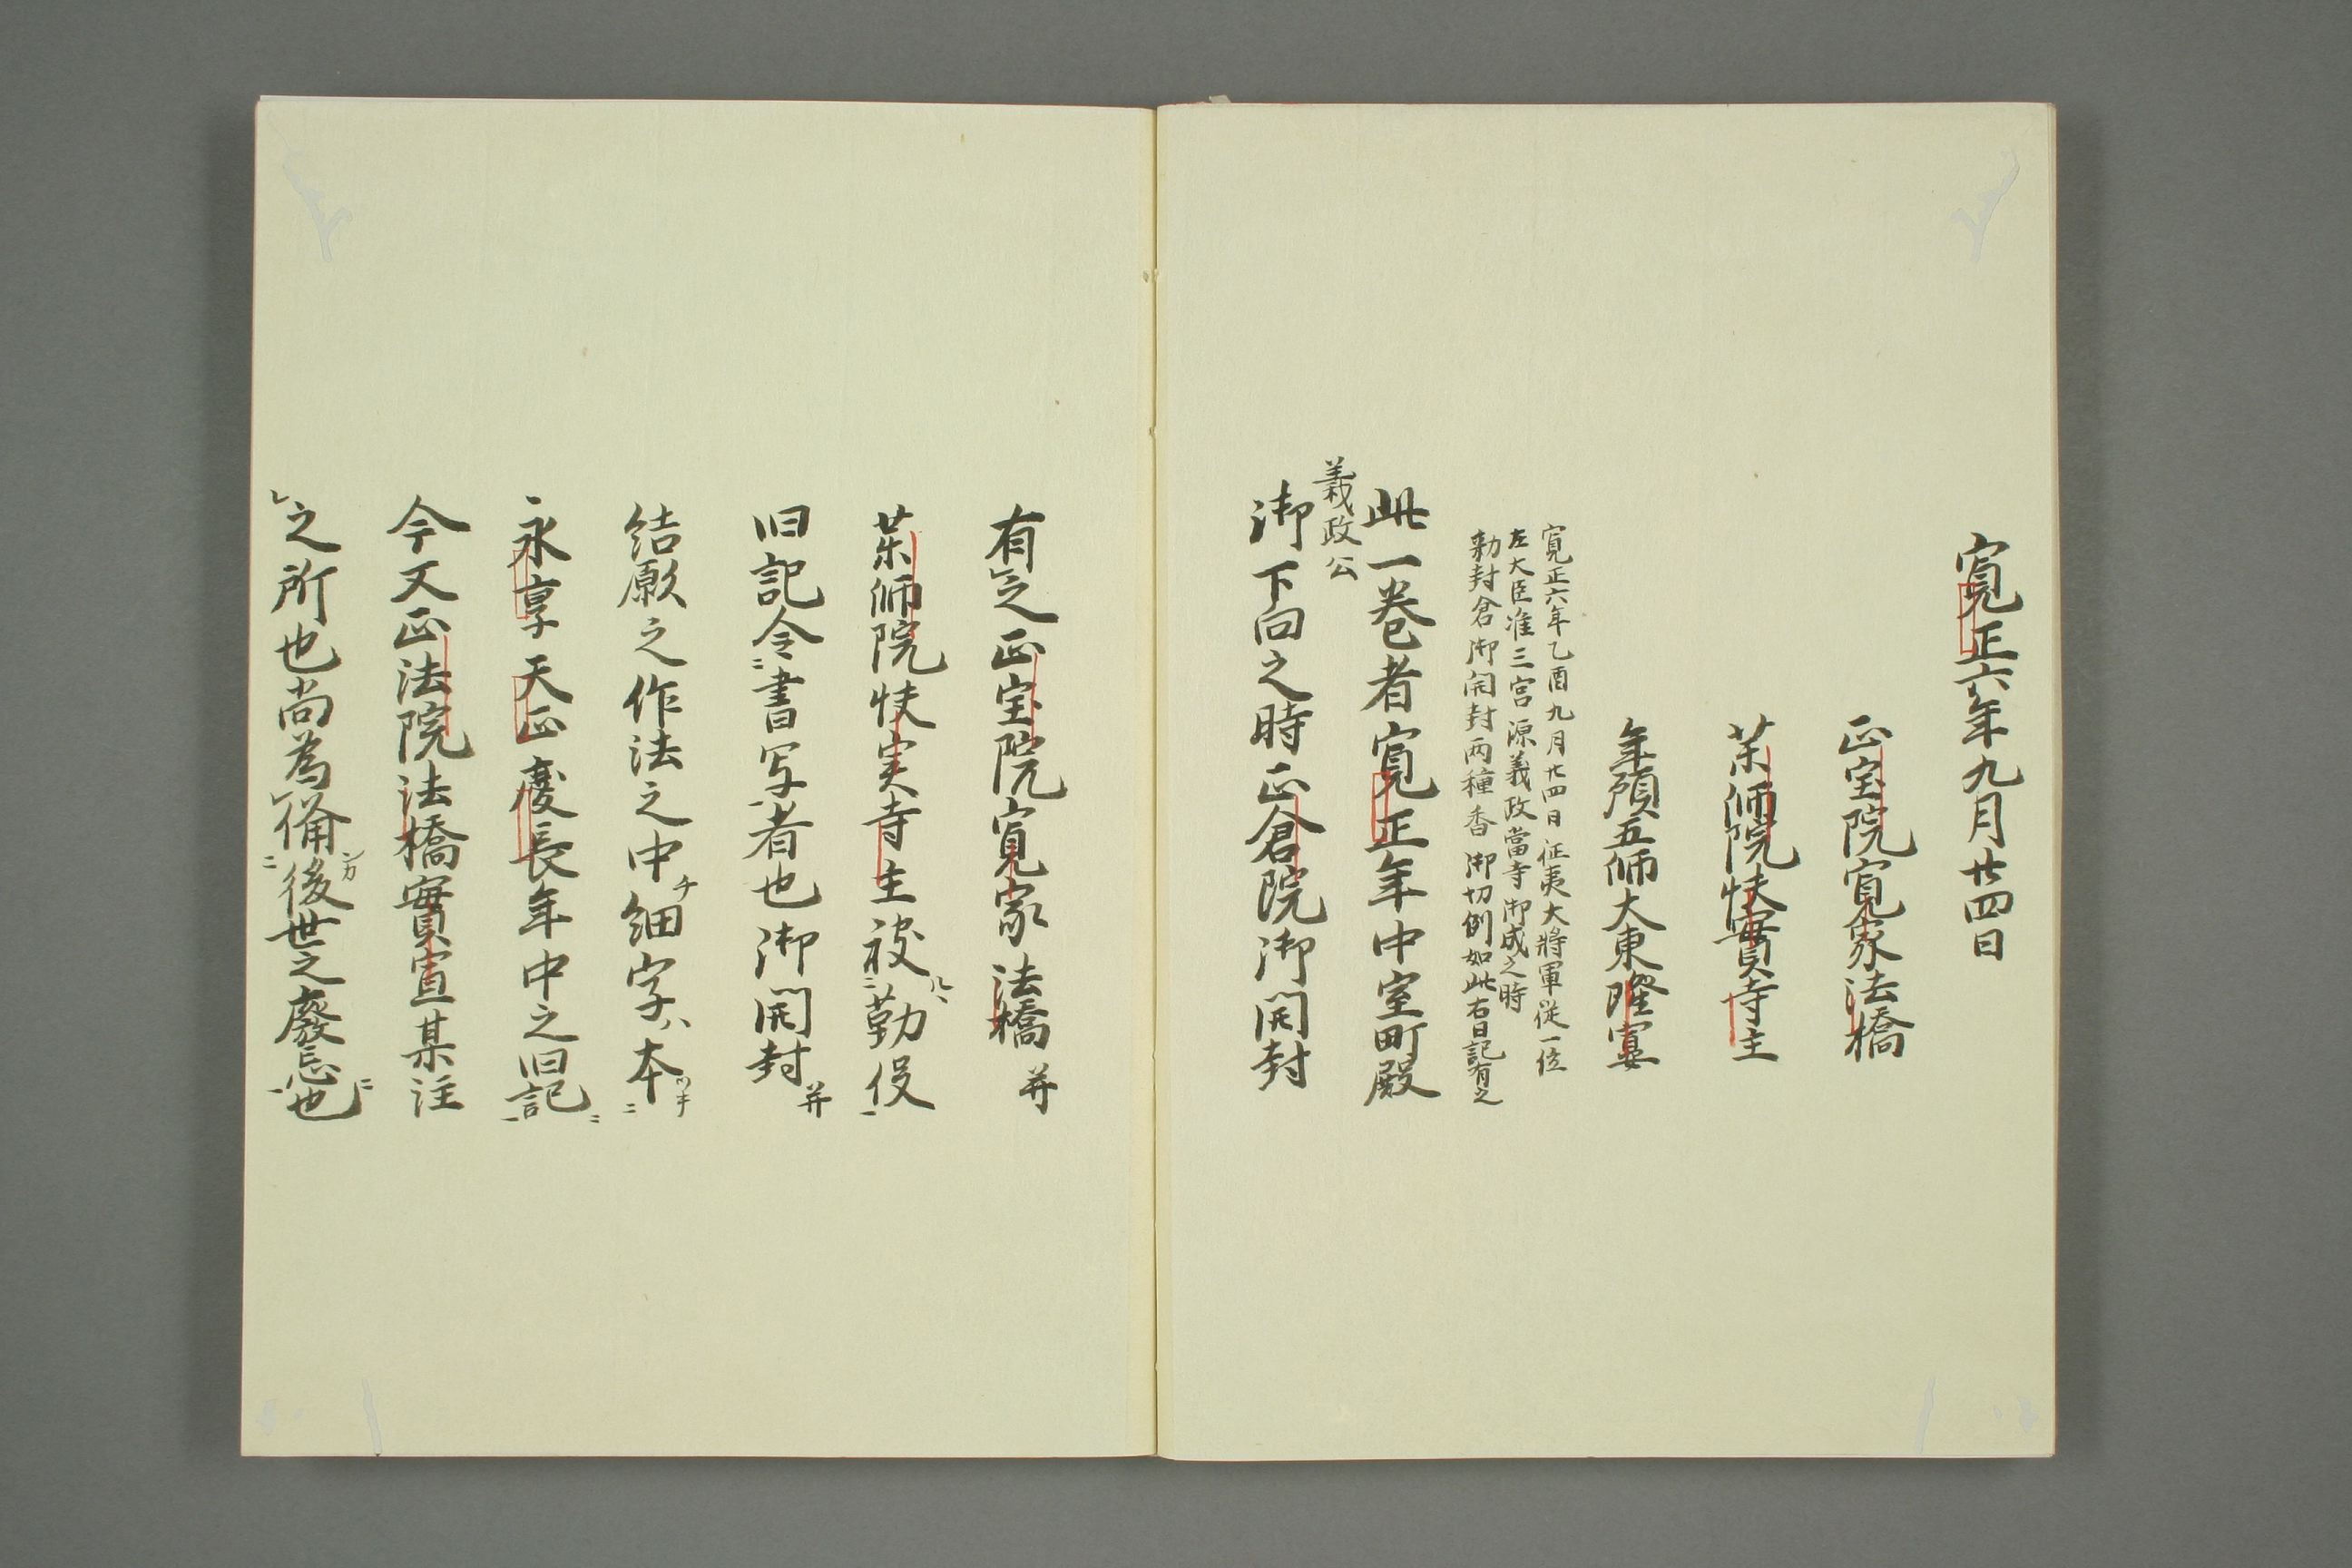 寛正六年九月廿四日
正宝院寛家法橋
薬師院快實寺主
年預五師大東隆実
寛正六年乙酉九月廿四日征夷大將軍従一位
左大臣准三宮源義政當寺御成之時
勅封倉御開封両種香御切例如此右日記有之
此一巻者寛正年中室町殿
義政公
御下向之時正倉院御開封
有之正宝院寛家法橋并
薬師院快実寺主被ルヽ勤役
旧記令書写者也御開封并
結願之作法之中チ細字ハ本ツキ
永享天正慶長年中之旧記
今又正法院法橋實宣某注
之所也尚為備ンカ後世之廢忘ニ也